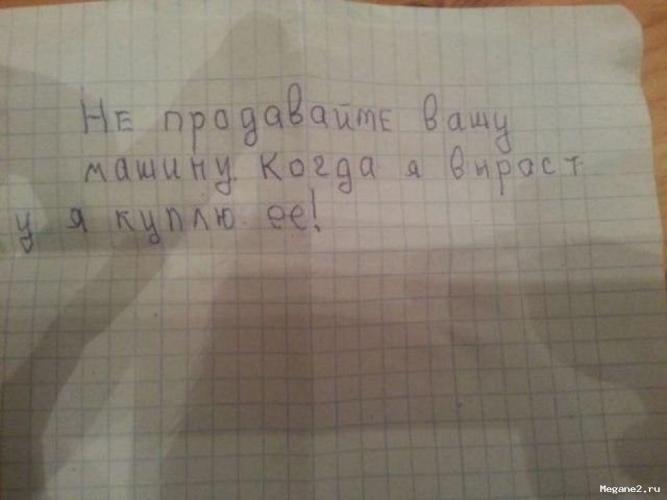 Не продавайте вашу
машину. Когда я выраст
у я куплю ее!
Megane2.ru